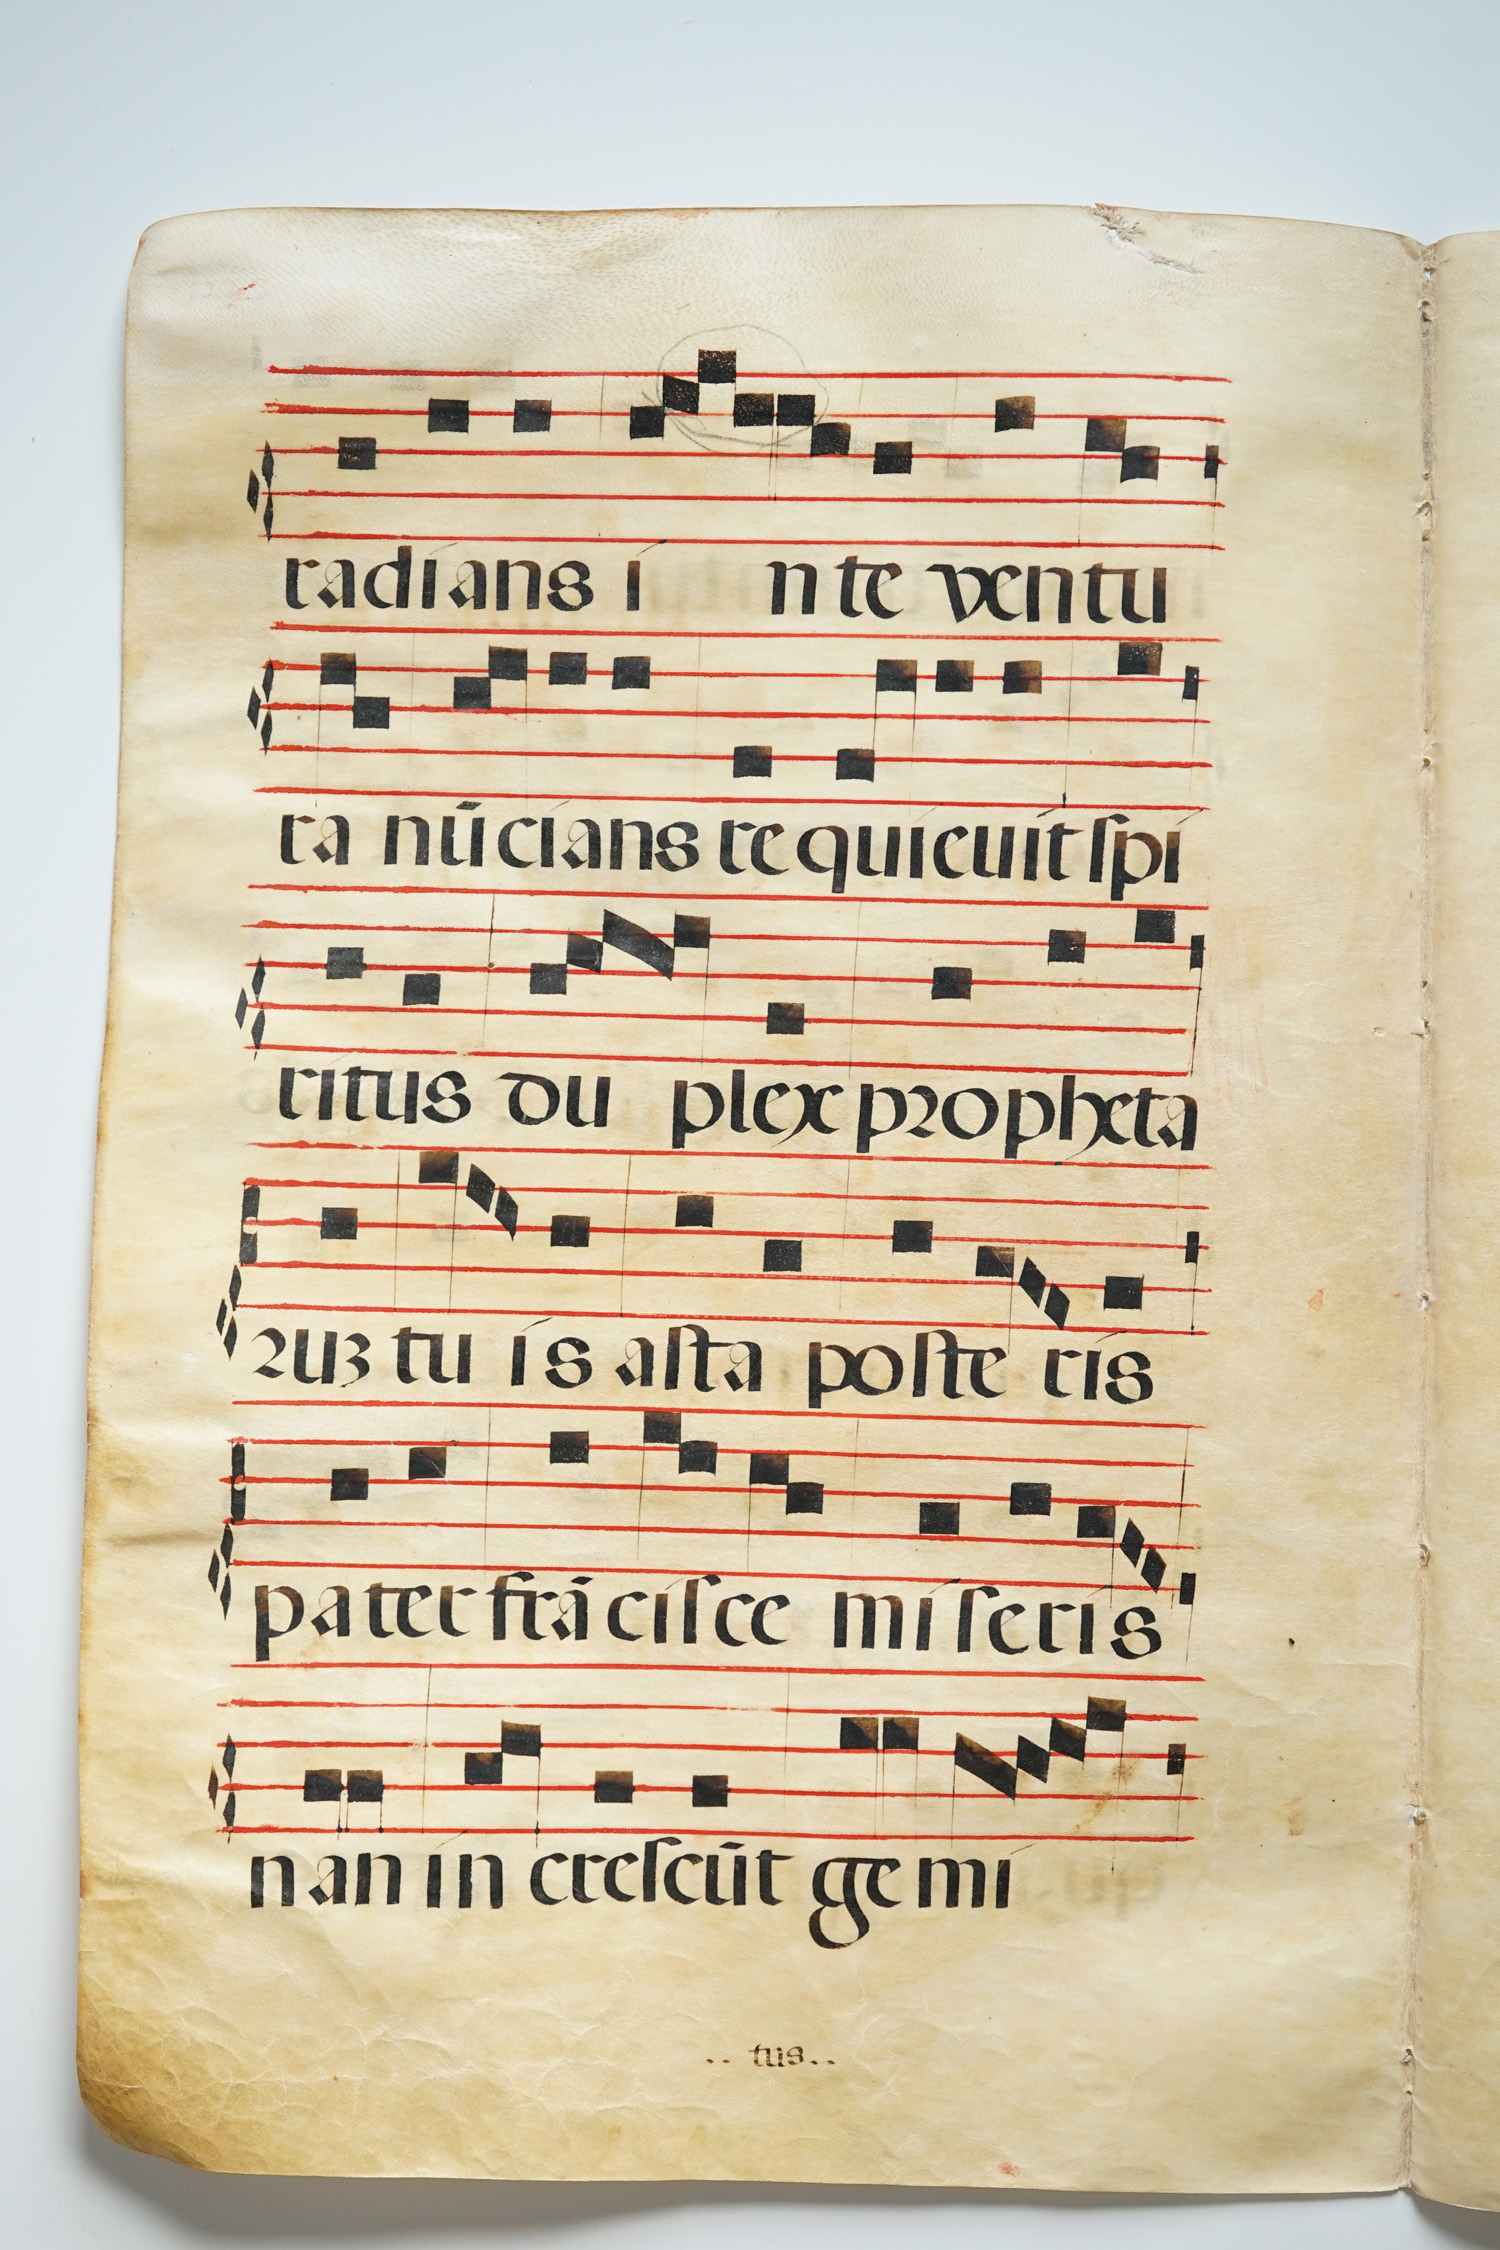 radians i n te ventu
ra nū cians re quieuit ſpi
ritus du plex propheta
ruꝫ tu is aſta poſte ris
pa ter frā ciſce mi ſeris
nan in creſcūt ge mi
.. tus..